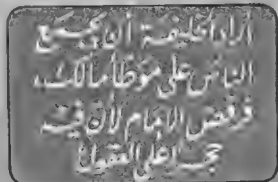 أراد الخليفة أن يجمع
الناس على موطأ مالك،
فرفض الإمام لأن فيه
حجرا على العقول!